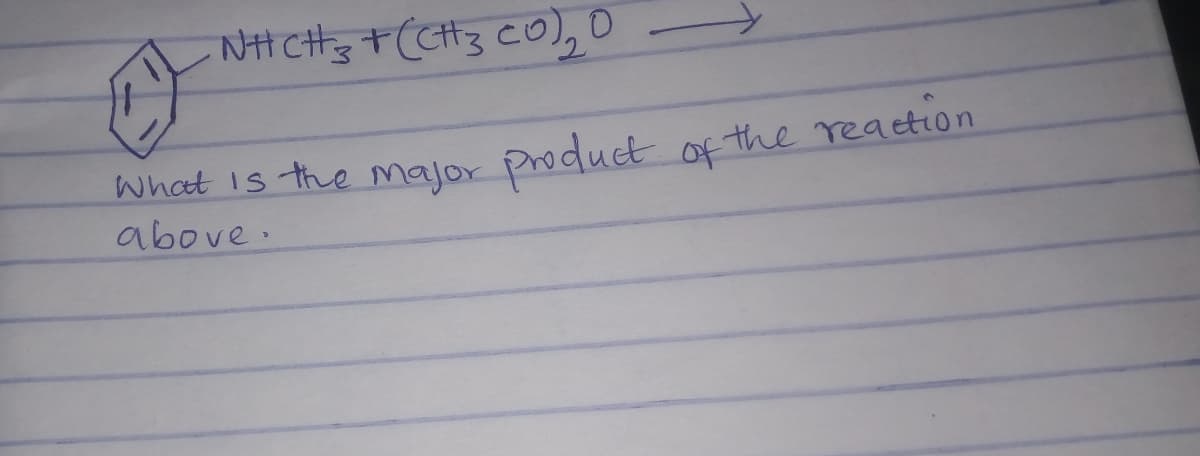 NHCH₃ + (CH₃CO)₂O →
What is the major product of the reaction
above.